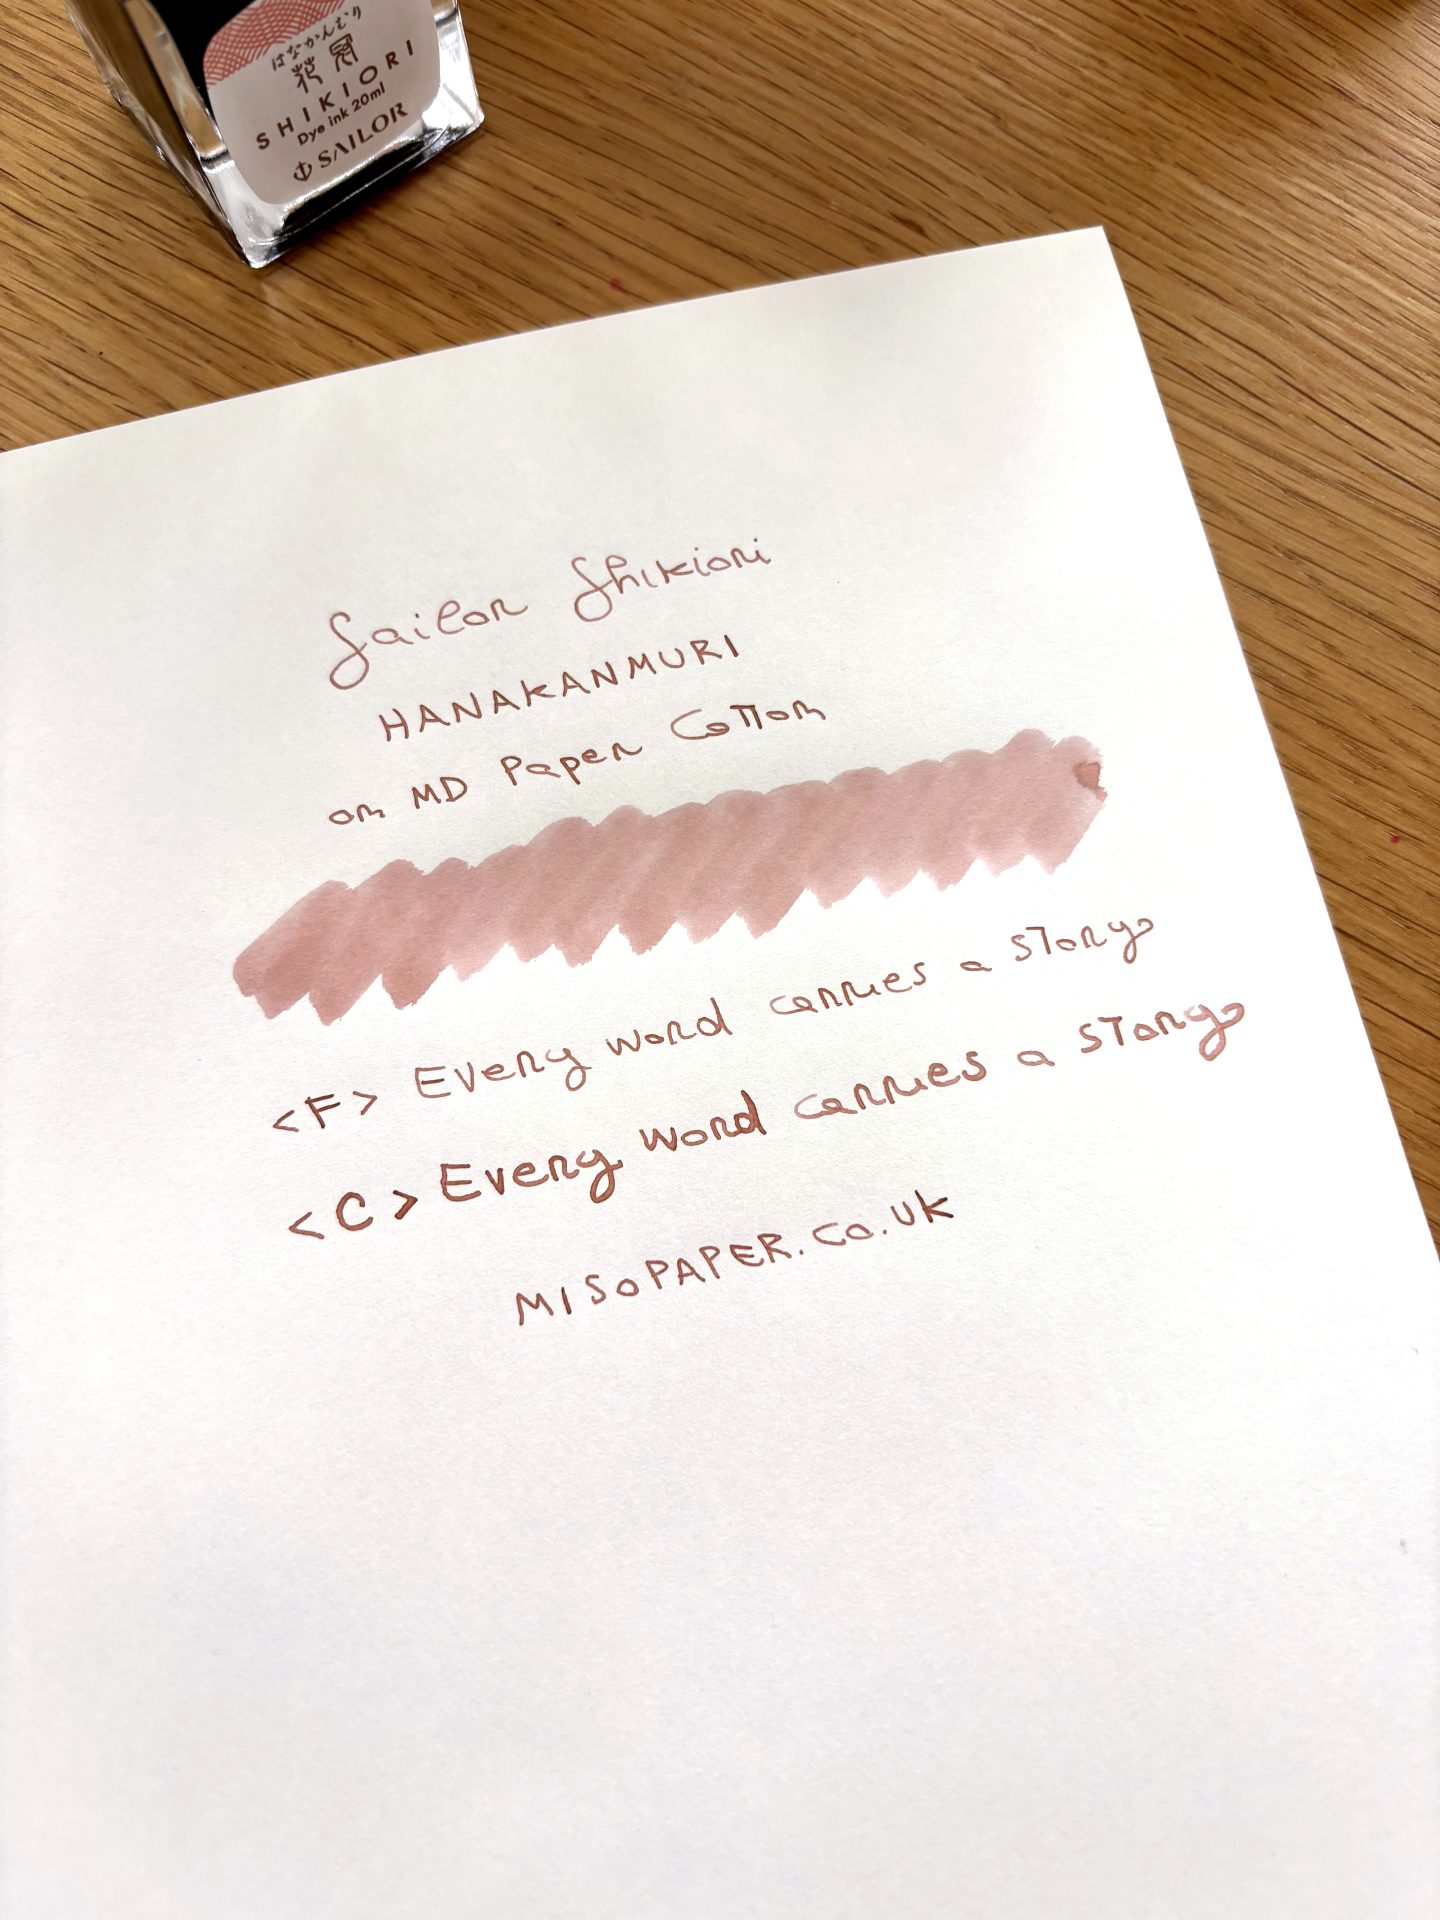 はなかんむり
花冠
SHIKIORI
Dye ink 20ml
SAILOR
Sailor Shikiori
HANAKANMURI
on MD Paper Cotton
<F> Every word carries a story
<C> Every word carries a story
MISOPAPER.CO.UK